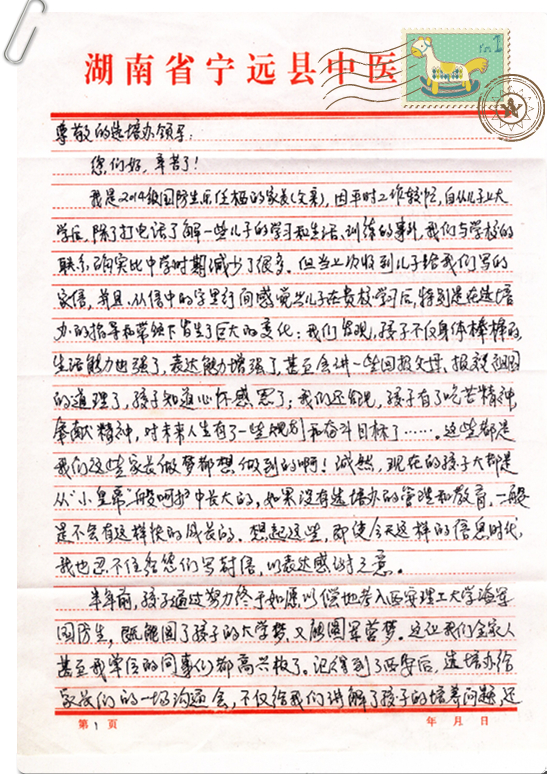 湖南省宁远县中医
尊敬的选培办领导：
您们好，辛苦了！
我是2014级国防生乐任栖的家长(父亲)，因平时工作较忙，自从儿子上大
学后，除了打电话了解一些儿子的学习和生活、训练的事外，我们与学校的
联系确实比中学时期减少了很多。但当上次收到儿子给我们写的
家信，并且从信中的字里行间感觉出儿子在贵校学习后，特别是在选培
办的指导和带领下发生了巨大的变化：我们发现，孩子不仅身体棒棒的，
生活能力也强了，表达能力增强了，甚至会讲一些回报父母、报效祖国
的道理了，孩子知道心怀感恩了；我们还发现，孩子有了吃苦精神，
奉献精神，对未来人生有了一些规划和奋斗目标了……。这些都是
我们这些家长做梦都想做到的啊！诚然，现在的孩子大都是
从“小皇帝”般呵护中长大的，如果没有选培办的管理和教育，一般
是不会有这样快的成长的。想起这些，即使今天这样的信息时代，
我也忍不住给您们写封信，以表达感谢之意。
半年前，孩子通过努力终于如愿以偿地考入西安理工大学海军
国防生，既能圆了孩子的大学梦，又能圆军营梦。这让我们全家人
甚至我单位的同事们都高兴极了。记得到了西安后，选培办给
家长们的一场沟通会，不仅给我们讲解了孩子的培养问题，还
第1页
年 月 日